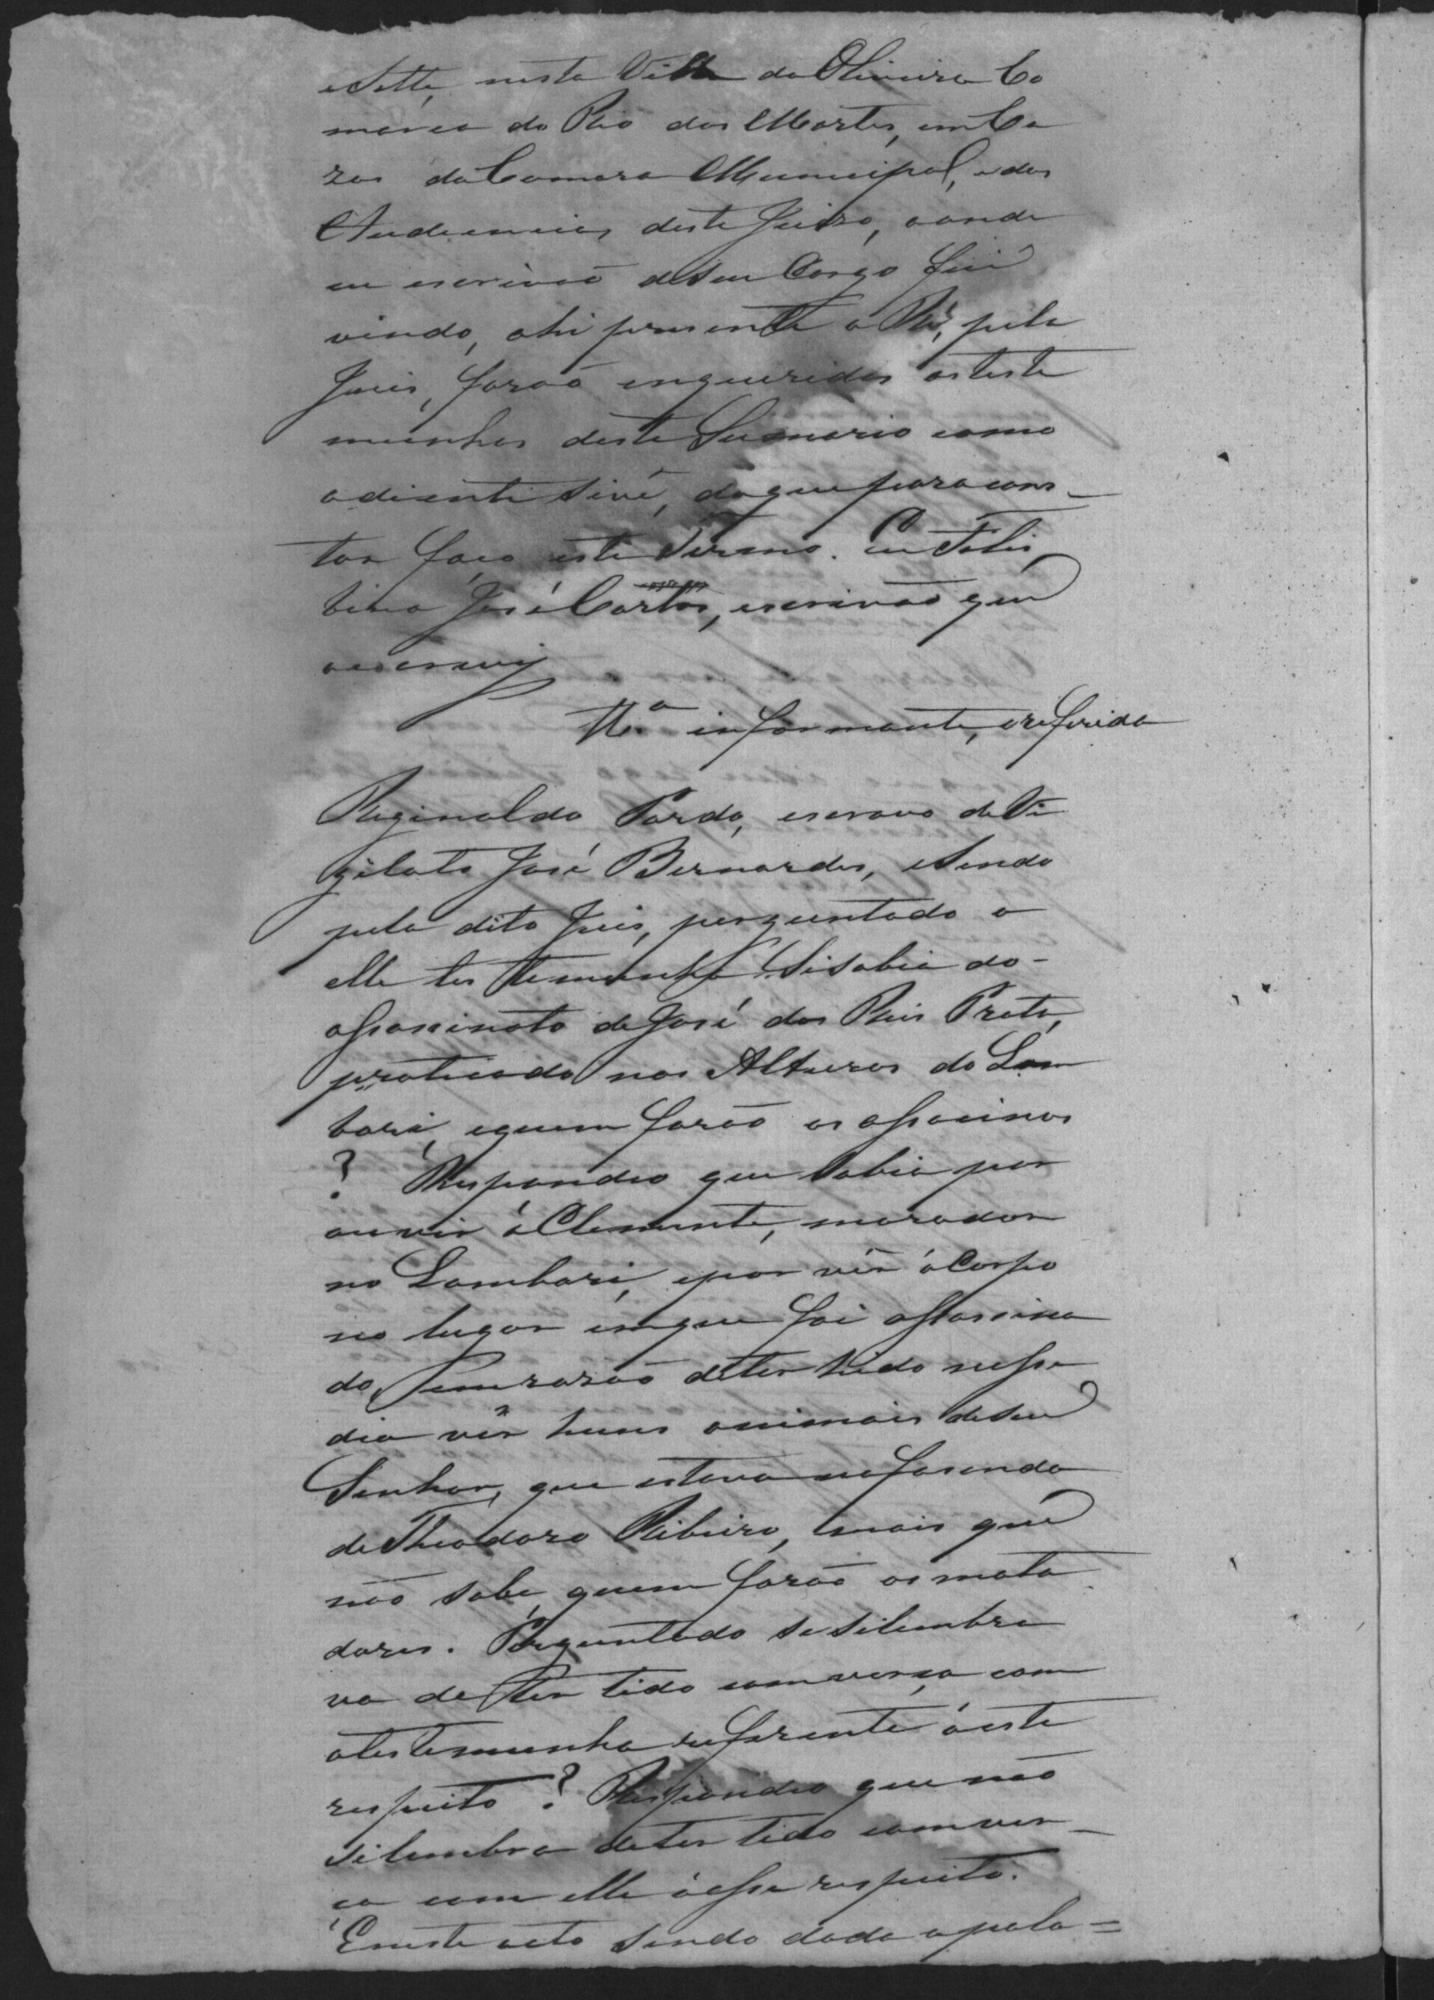 e sette, nesta Villa da Oliveira Co
marca do Rio das Mortes, em Ca
zas da Camara Municipal, e das
Audiencias deste Juizo, aonde
eu escrivão de seu Cargo fui
vindo, ahi prezente o Ré, pelo
Juis, forão enqueridas as teste
munhas deste Sumario como
adiente sivê, do que para cons-
tar faço este Termo. Eu Felis
bino José Carlos, escrivão que
o escrevy
Tta. informante, e referida
Reginaldo Pardo, escravo de Vi
gilato José Bernardes, e Sendo
pelo dito Juis, perguntado a
elle tes temunha Sisabia do-
assassinato de José dos Reis Preto,
praticado nas Alturas do Lam
bari, equem forão os assacinos
? Respondeo que Sabia por
ouvir á Clemente, morador
no Lambari, epor vêr ó Corpo
no lugar emque foi assassina
do, em rasão deter hido nesse
dia vêr huns animais deseu
Senhor, que estava na fasenda
de Theodoro Ribeiro, mais que
não sabe quem forão os mata
dores. Perguntado se silembra
va de ter tido comverça com
atestemunha referente á este
respeito? Respondeo que não
silembra deter tido comver-
ça com elle á esse respeito.
E neste acto sendo dada a pala=